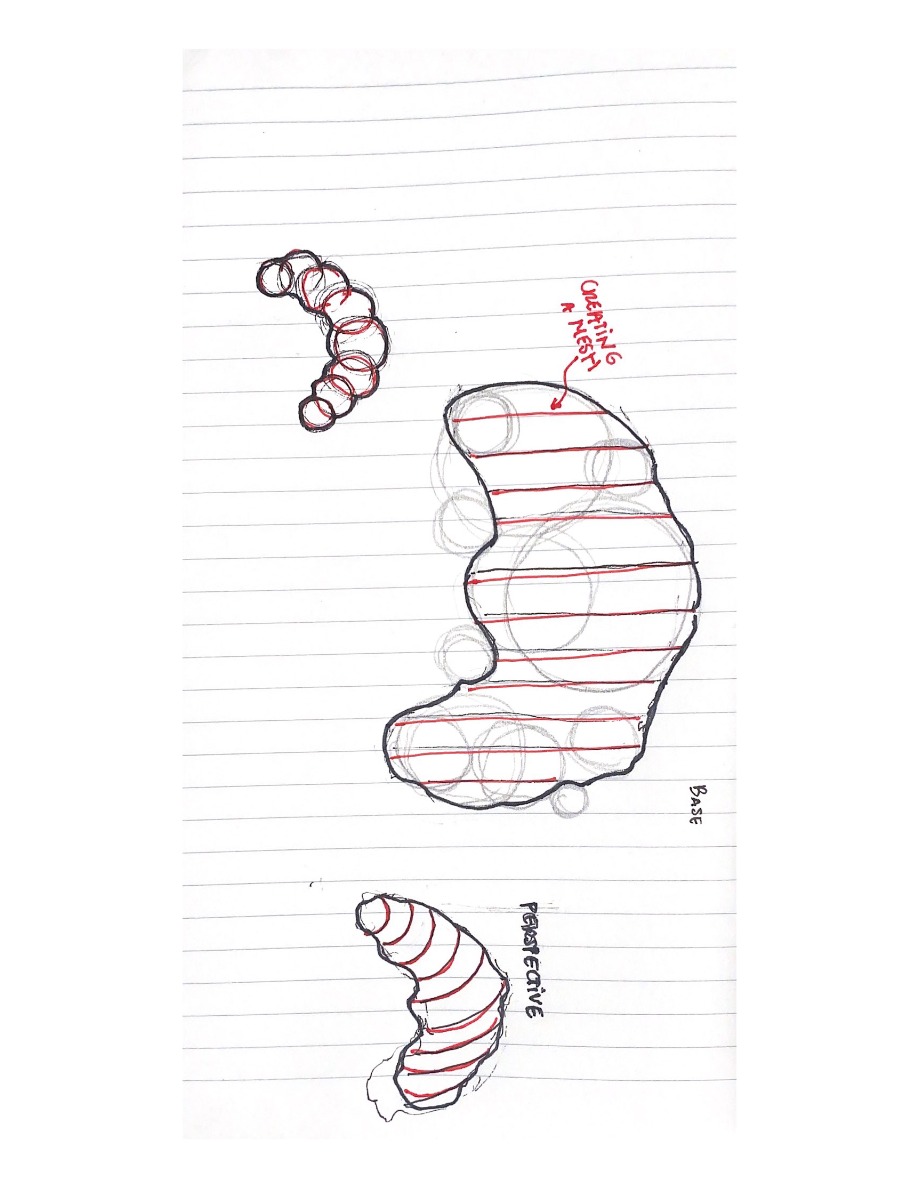 BASE
CREATING
A MESH
PERSPECTIVE